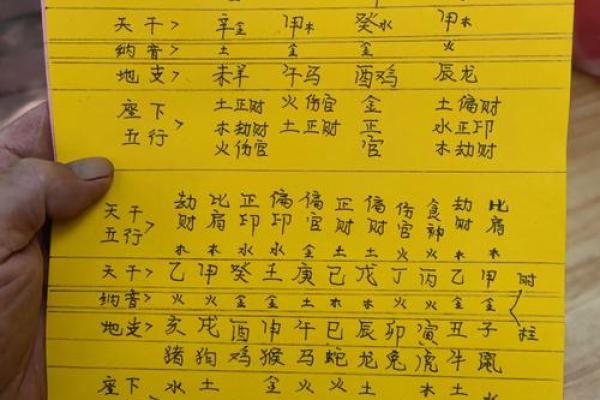 天干> 辛金 甲木 癸水 甲木
纳音> 土 金 金 火
地支> 未羊 午马 酉鸡 辰龙
座下 土正财 火伤官 金 土偏财
五行> 木劫财 土正财 正 水正印
火伤官 官 木劫财
天干 劫 比 正 偏 偏 正 偏 伤 食 劫 比
五行> 财 肩 印 印 官 财 财 官 神 财 肩
木 木 水 水 金 土 土 火 火 木 木
天干> 乙 甲 癸 壬 庚 己 戊 丁 丙 乙 甲 时
纳音> 火 火 金 金 土 木 木 火 火 金 金
地支> 亥 戌 酉 申 午 巳 辰 卯 寅 丑 子 柱
猪 狗 鸡 猴 马 蛇 龙 兔 虎 牛 鼠
座下 水 土 金 火 火 土 木 土